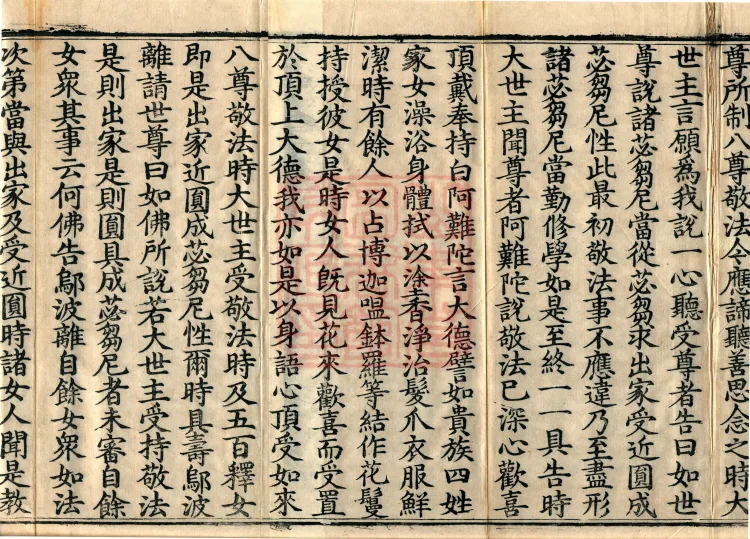 尊所制八尊敬法今應諦聽善思念之時大
世主言願為我說一心聽受尊者告曰如世
尊說諸苾芻尼當從苾芻求出家受近圓成
苾芻尼性此最初敬法事不應違乃至盡形
諸苾芻尼當勤修學如是至終一一具告時
大世主聞尊者阿難陀說敬法已深心歡喜
頂戴奉持白阿難陀言大德譬如貴族四姓
家女澡浴身體拭以涂香淨治髮爪衣服鮮
潔時有餘人以占博迦嗢鉢羅等結作花鬘
持授彼女是時女人既見花來歡喜而受置
於頂上大德我亦如是以身語心頂受如來
八尊敬法時大世主受敬法時及五百釋女
即是出家近圓成苾芻尼性爾時具壽鄔波
離請世尊曰如佛所說若大世主受持敬法
是則出家是則圓具成苾芻尼者未審自餘
女衆其事云何佛告鄔波離自餘女衆如法
次第當與出家及受近圓時諸女人聞是教